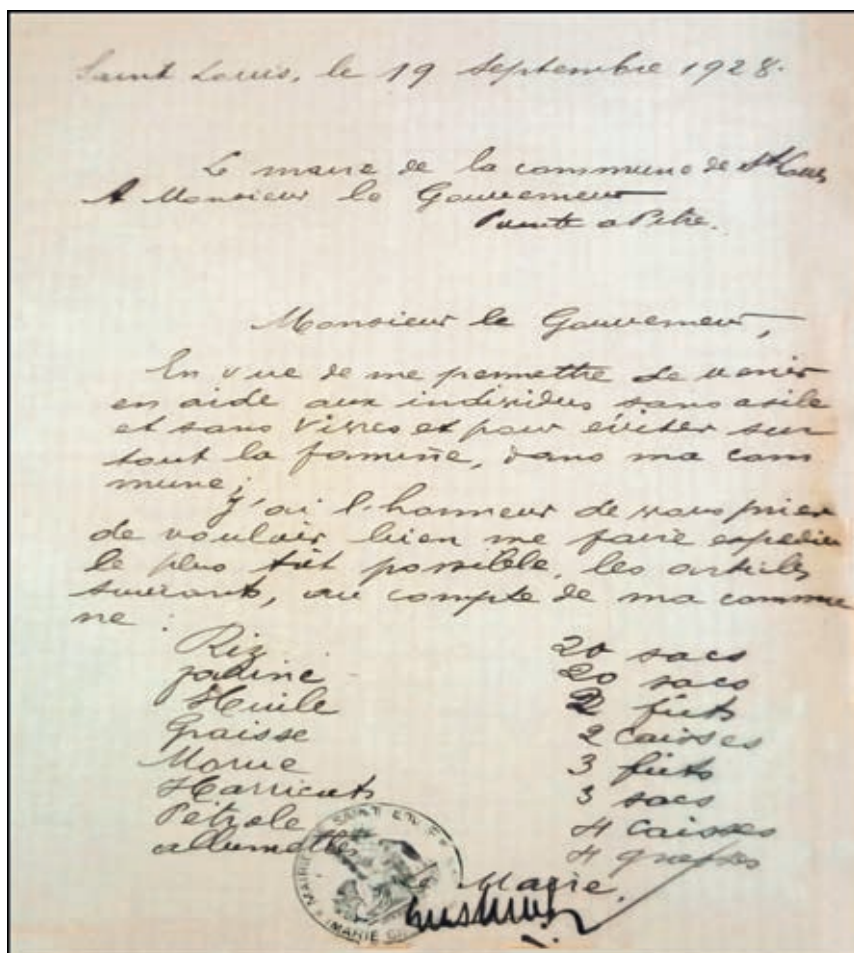 Saint Louis, le 19 Septembre 1928.
Le maire de la commune de St Louis
A Monsieur le Gouverneur
Pointe a Pitre.
Monsieur le Gouverneur,
En vue de me permettre de venir
en aide aux individus sans asile
et sans vivres et pour éviter sur
tout la famine, dans ma com
mune;
J'ai l'honneur de vous prier
de vouloir bien me faire expedier
le plus tôt possible, les articles
suivants, au compte de ma commu
ne :
Riz 20 sacs
farine 20 sacs
Huile 2 fûts
Graisse 2 caisses
Morue 3 fûts
Harricots 3 sacs
Pétrole 4 caisses
allumettes 4 grosses
MAIRIE SAINT LOUIS
MARIE